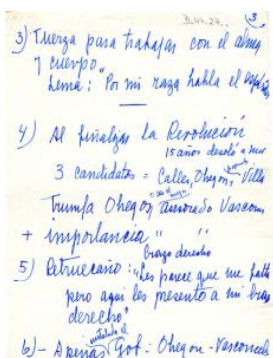 3
3) Fuerza para trabajar con el alma
y cuerpo
Lema: "Por mi raza habla el espíritu
4) Al finalizar la Revolución
15 años desoló a
3 candidatos = Calles, Obregon, Villa
Triunfa Obregon asesorado Vasconc
+ importancia " "
brazo derecho
5) Retruecano: "Les parece que me falta
pero aqui les presento a mi brazo
derecho"
instalado el
6) - Apenas Gob = Obregon - Vasconcelos